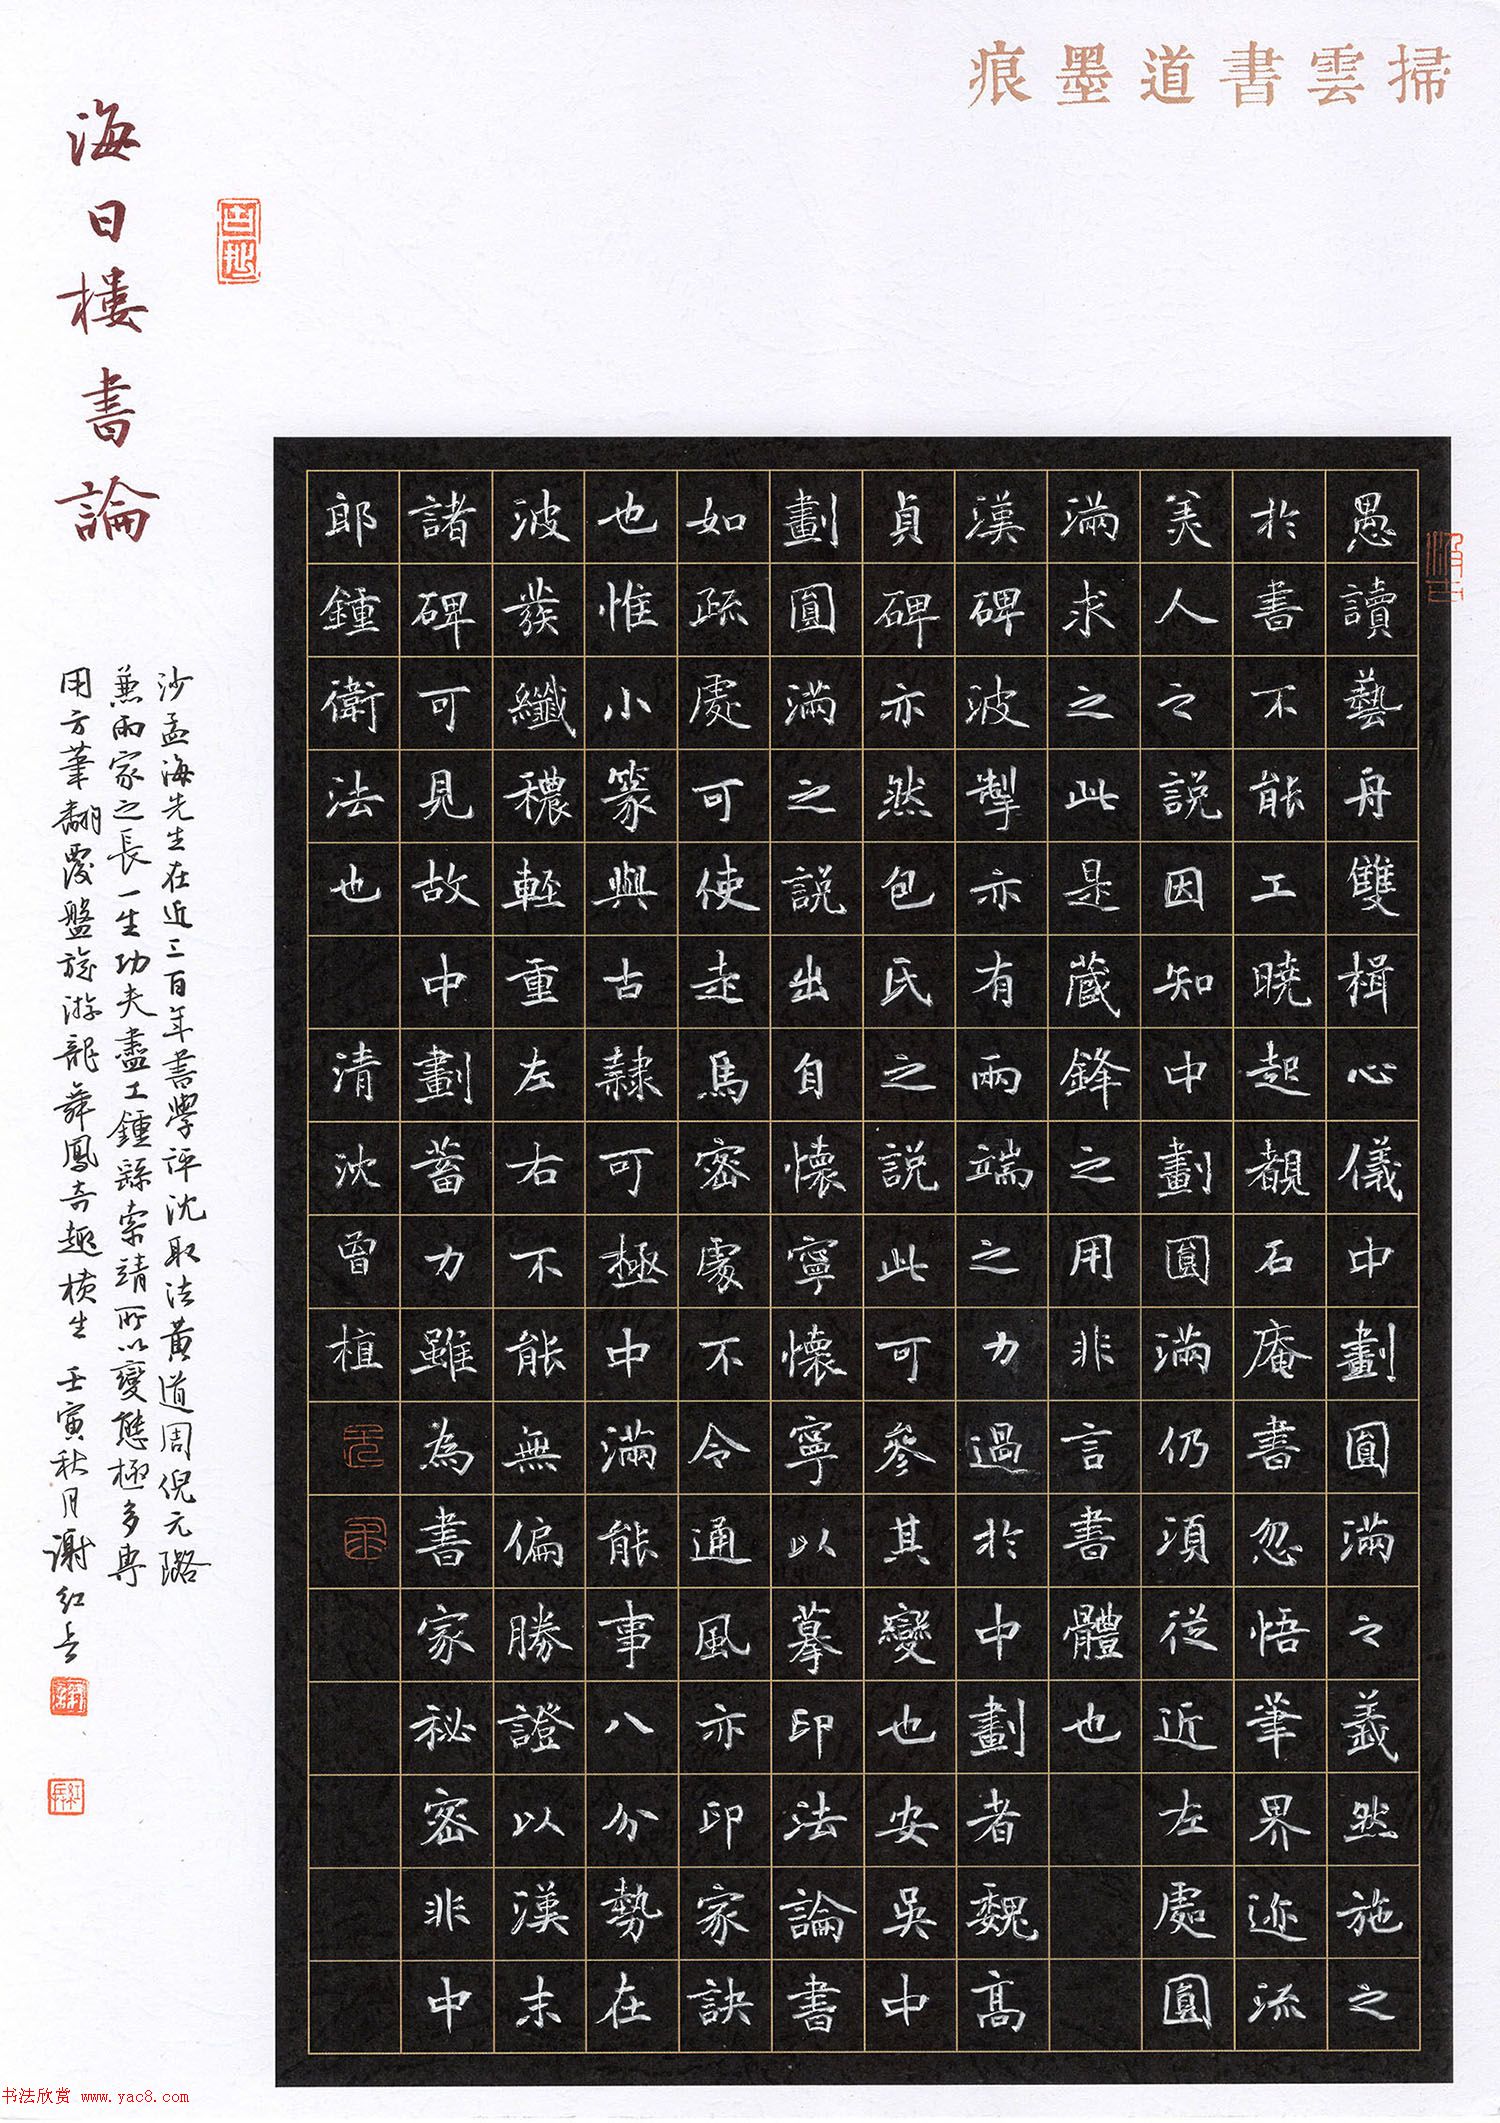 掃雲書道墨痕
愚讀藝舟雙楫心儀中劃圓滿之義然施之
於書不能工曉起覩石庵書忽悟筆界迹流
美人之説因知中劃圓滿仍須從近左處圓
滿求之此是藏鋒之用非言書體也
漢碑波掣亦有兩端之力過於中劃者魏高
貞碑亦然包氏之説此可參其變也安吳中
劃圓滿之説出自懷寧懷寧以摹印法論書
如疏處可使走馬密處不令通風亦印家訣
也惟小篆與古隸可極中滿能事八分勢在
波發纖穠輕重左右不能無偏勝證以漢末
諸碑可見故中劃蓄力雖為書家秘密非中
郎鍾衛法也 清沈曾植
海日樓書論
沙孟海先生在近三百年書學評沈取法黄道周倪元璐
兼兩家之長一生功夫盡工鍾繇索靖所以變態極多專
用方筆翻覆盤旋游龍舞鳳奇趣横生 壬寅秋月謝紅兵
书法欣赏 www.yac8.com